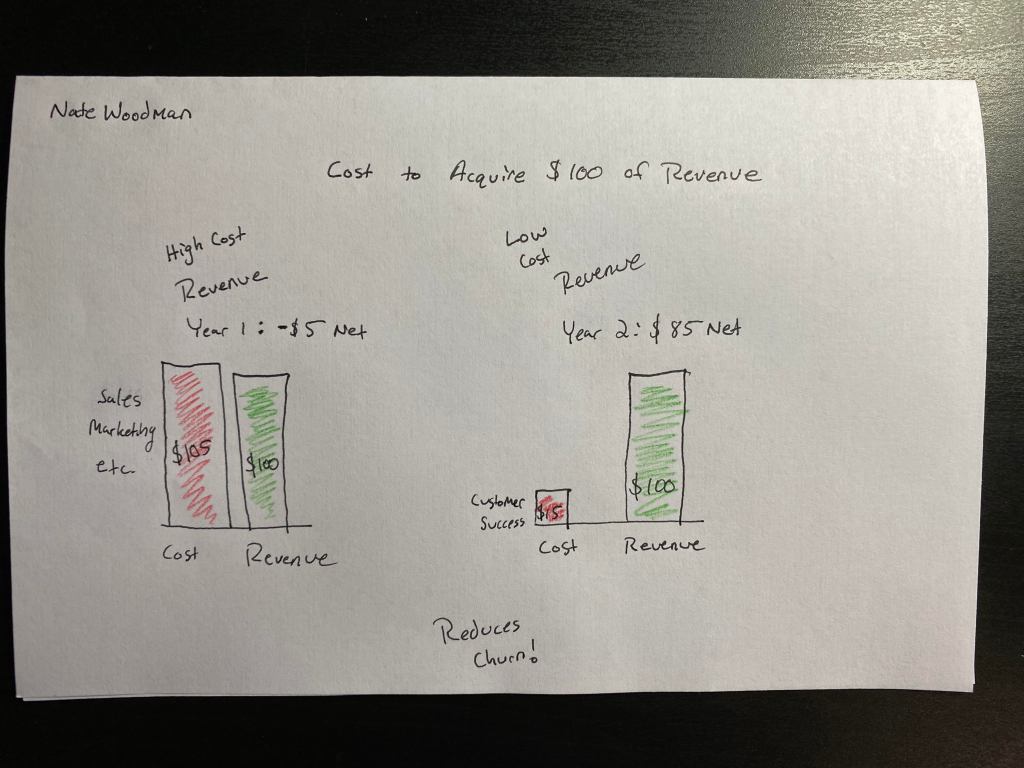 Nate Woodman
Cost to Acquire $100 of Revenue
High Cost
Revenue
Year 1: -$5 Net
Sales
Marketing
etc.
$105
$100
Cost
Revenue
Low
Cost
Revenue
Year 2: $85 Net
Customer
Success
$15
$100
Cost
Revenue
Reduces
Churn!